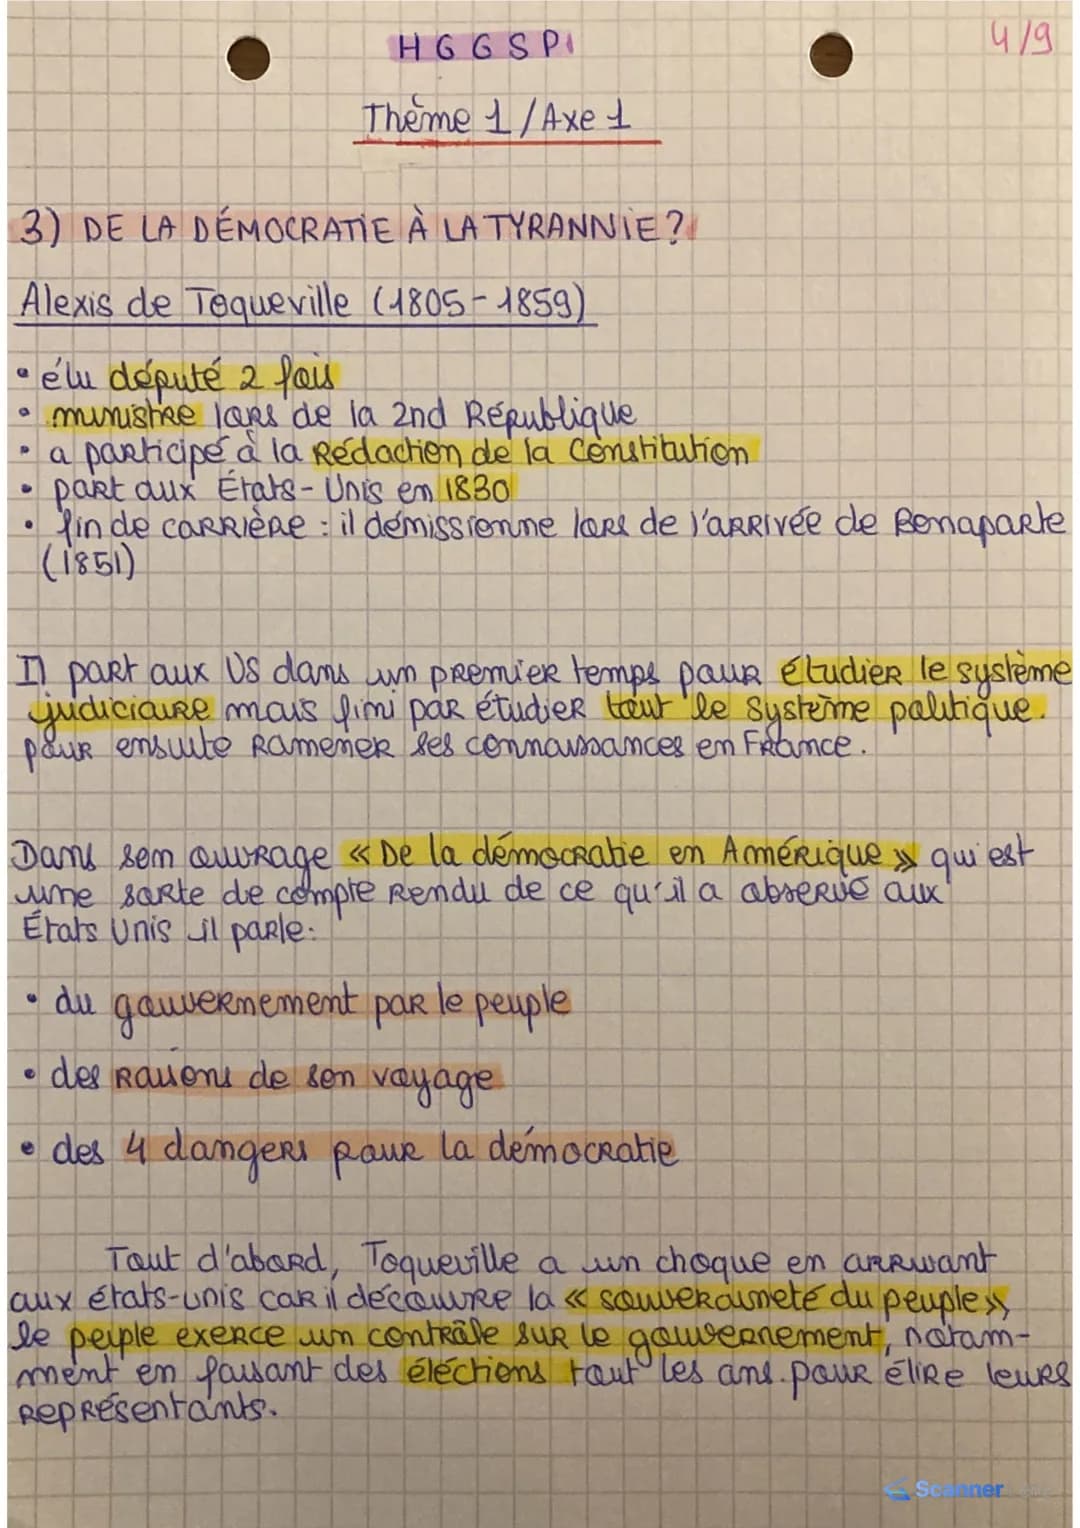 HGGSP
4/9
Thème 1/Axe 1
3) DE LA DÉMOCRATIE À LA TYRANNIE?
Alexis de Toqueville (1805-1859)
• élu député 2 fois
• ministre lors de la 2nd République
• a participé à la Rédaction de la Constitution
• part aux États-Unis en 1830
• fin de carrière : il démissionne lors de l'arrivée de Bonaparte
(1851)
Il part aux US dans un premier temps pour étudier le système
judiciaire mais fini par étudier tout le système politique.
pour ensuite ramener ses connaissances en France.
Dans son ouvrage « De la démocratie en Amérique » qui est
une sorte de compte rendu de ce qu'il a observé aux
États Unis il parle:
• du gouvernement par le peuple
• des raisons de son voyage
• des 4 dangers pour la démocratie
Tout d'abord, Toqueville a un choque en arrivant
aux états-unis car il découvre la « souveraineté du peuple »,
le peuple exerce un contrôle sur le gouvernement, notam-
mment en faisant des élections tout les ans. pour élire leurs
représentants.
Scanner